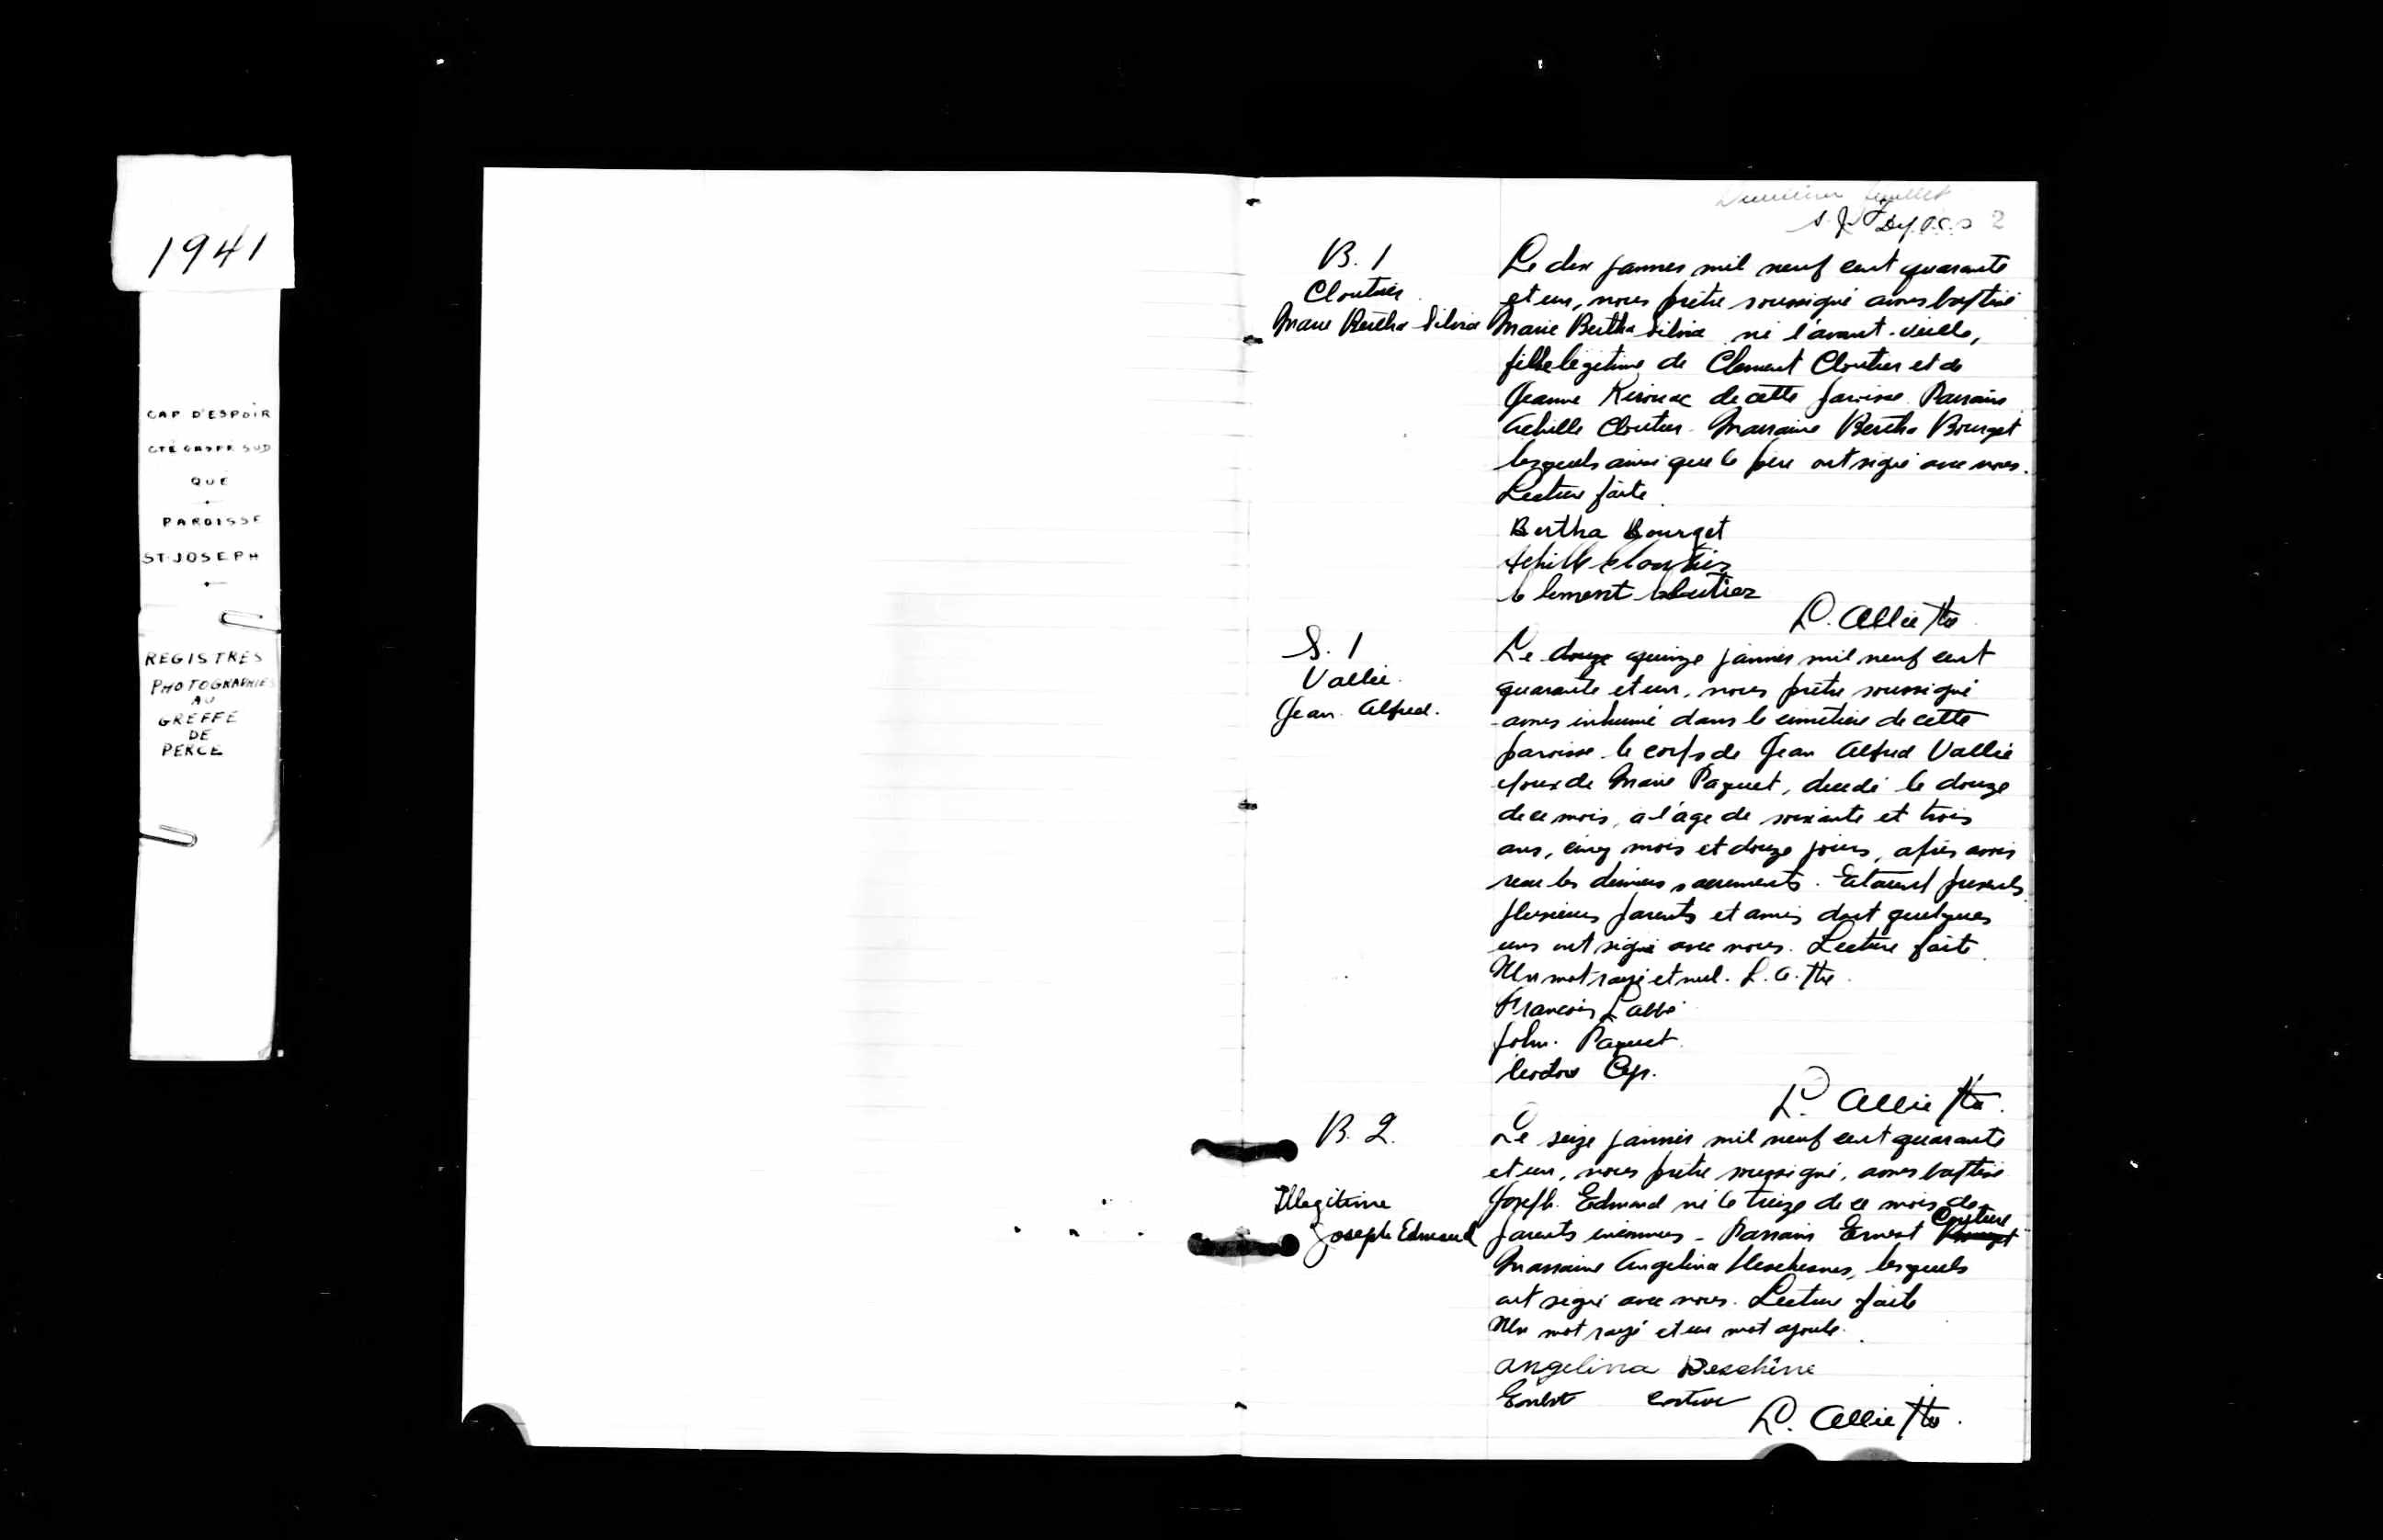 1941
CAP D'ESPOIR
CTÉ GASPE SUD
QUÉ
PAROISSE
ST-JOSEPH
REGISTRES
PHOTOGRAPHIES
AU
GREFFE
DE
PERCÉ
Deuxième feuillet
2
B. 1
Cloutier
Marie Bertha Silvia
Le deux janvier mil neuf cent quarante
et un, nous prêtre soussigné avons baptisé
Marie Bertha Silvia né l'avant-veille,
fille légitime de Clement Cloutier et de
Jeanne Kirouac de cette paroisse. Parrain
Achille Cloutier. Marraine Bertha Bourget
lesquels ainsi que le père ont signé avec nous.
Lecture faite.
Bertha Bourget
Achille Cloutier
Clement Cloutier
L. Allie Ptre
S. 1
Vallée.
Jean Alfred.
Le douze quinze janvier mil neuf cent
quarante et un, nous prêtre soussigné
avons inhumé dans le cimetière de cette
paroisse le corps de Jean Alfred Vallée
époux de Marie Paquet, décédé le douze
de ce mois, a l'âge de soixante et trois
ans, cinq mois et douze jours, après avoir
recu les derniers sacrements. Etaient présents
plusieurs parents et amis dont quelques
uns ont signé avec nous. Lecture faite.
Un mot rayé et nul. L. A. Ptre.
François Labbé
John. Paquet.
L. Allie Ptre.
B. 2.
Illegitime
Joseph Edmond
Le seize janvier mil neuf cent quarante
et un, nous prêtre soussigné, avons baptisé
Joseph Edmond né le treize de ce mois de
parents inconnus - Parrain Ernest Couture Bourget
Marraine Angelina Deschesnes, lesquels
ont signé avec nous. Lecture faite
Un mot rayé et un mot ajouté.
Angelina Deschêne
Ernest Couture
L. Allie Ptre.